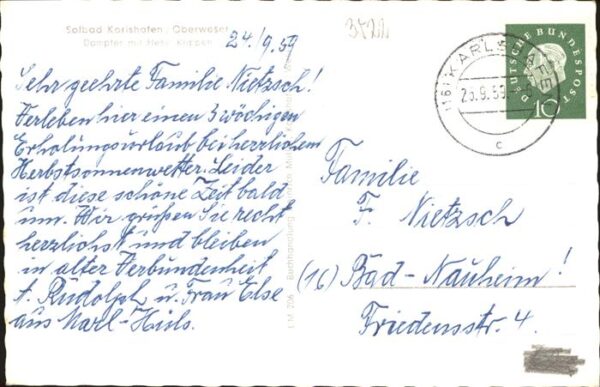 Solbad Karlshafen, Oberweser
Dampfer mit Hess. Klippen
3422
24./9.59
Sehr geehrte Familie Nietzsch!
Verleben hier einen 3 wöchigen
Erholungsurlaub bei herrlichem
Herbstsonnenwetter. Leider
ist diese schöne Zeit bald
um. Wir grüßen Sie recht
herzlichst und bleiben
in alter Verbundenheit
A. Rudolph u. Frau Else
aus Marl-Hüls.
DEUTSCHE BUNDESPOST
10
(16) KARLSHAFEN
25.9.59
c
Familie
F. Nietzsch
(16) Bad-Nauheim!
Friedensstr. 4.
Buchhandlung